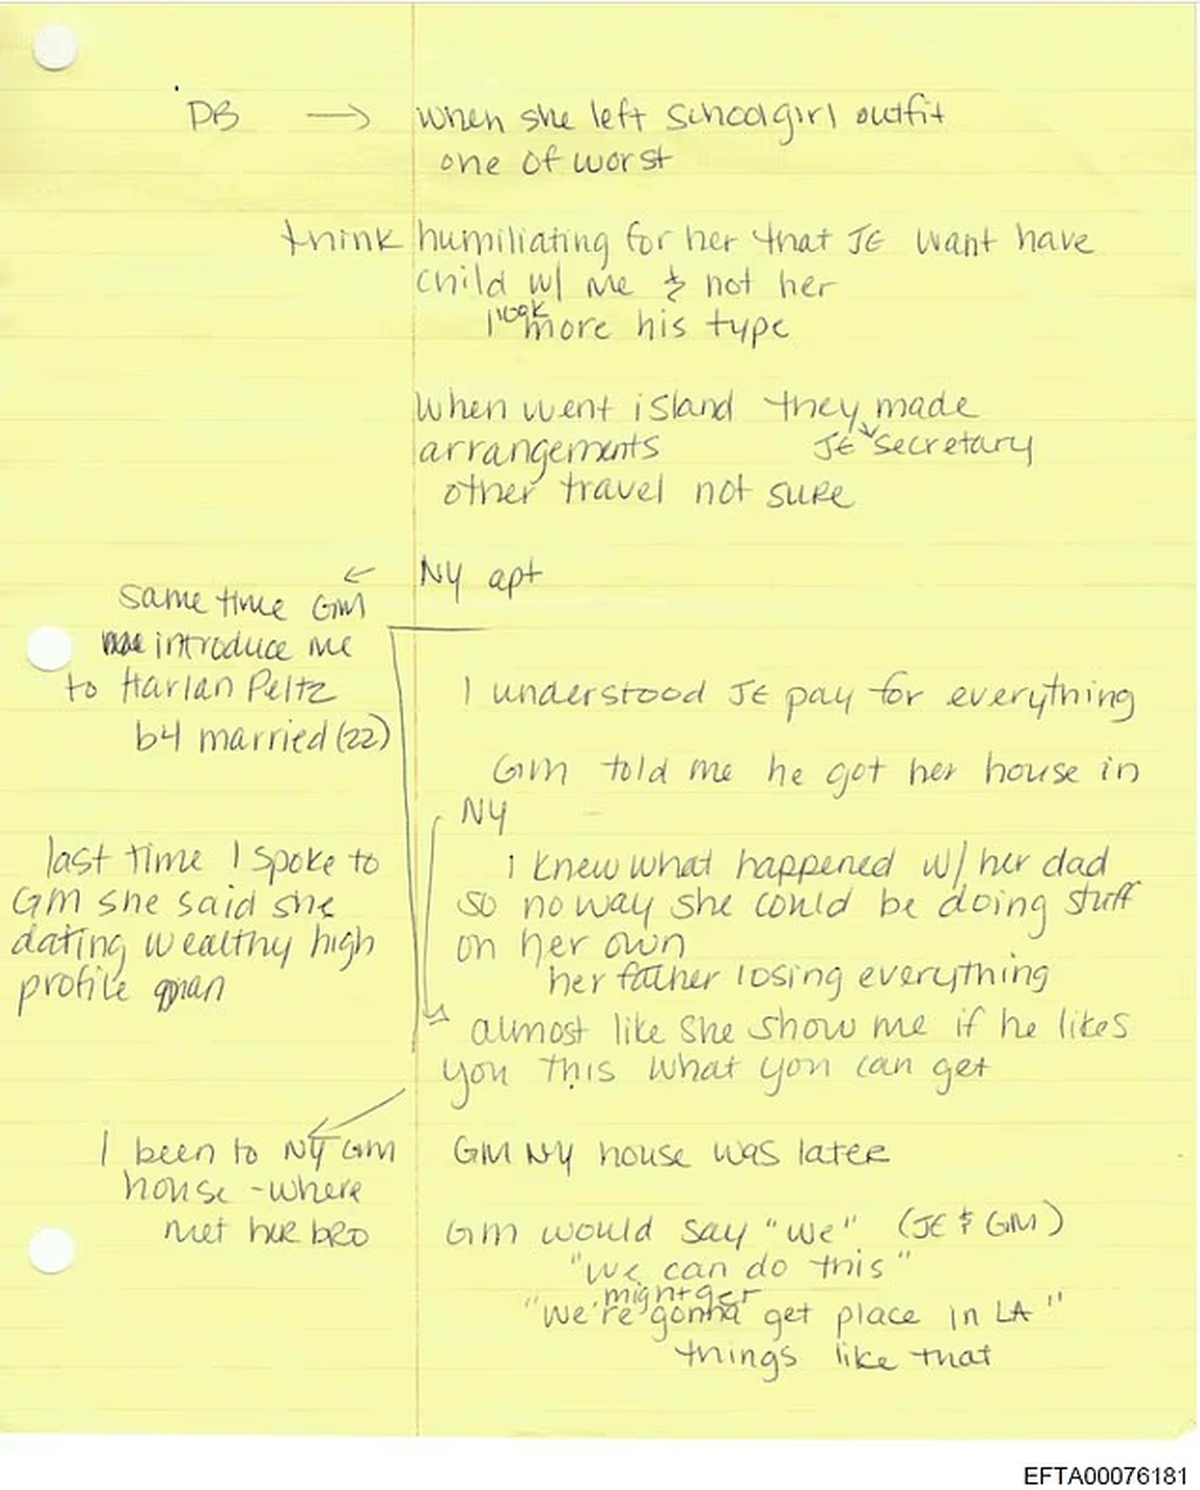 DB → when she left schoolgirl outfit
one of worst
think humiliating for her that JE want have
child w/ me & not her
I look more his type
When went island they made
arrangements JE secretary
other travel not sure
← NY apt
same time GM
introduce me
to Harlan Peltz
b4 married (22)
I understood JE pay for everything
GM told me he got her house in
NY
last time I spoke to
GM she said she
dating wealthy high
profile man
i knew what happened w/ her dad
so no way she could be doing stuff
on her own
her father losing everything
almost like she show me if he likes
you this what you can get
I been to NY GM
house - where
met her bro
GM NY house was later
GM would say "we" (JE & GM)
"we can do this"
might get
"we're gonna get place in LA"
things like that
EFTA00076181